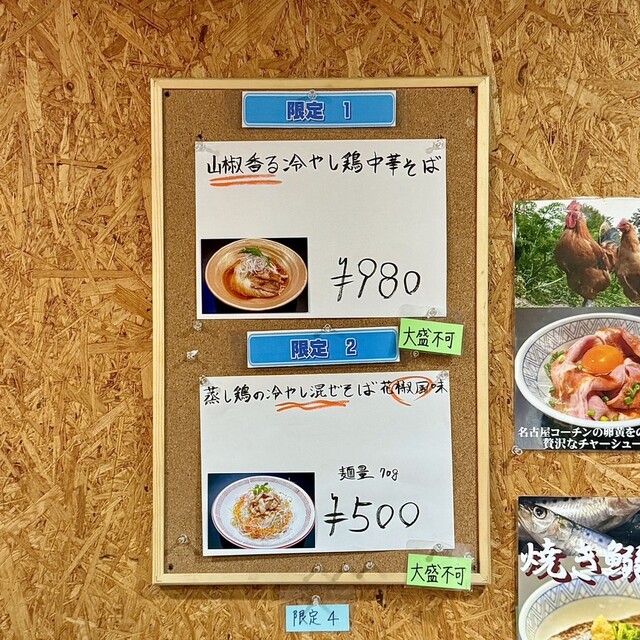 限定 1
山椒香る冷やし鶏中華そば
¥980
大盛不可
限定 2
蒸し鶏の冷やし混ぜそば花椒風味
麺量 70g
¥500
大盛不可
限定 4
名古屋コーチンの卵黄をの
贅沢なチャーシュー
焼き鰯